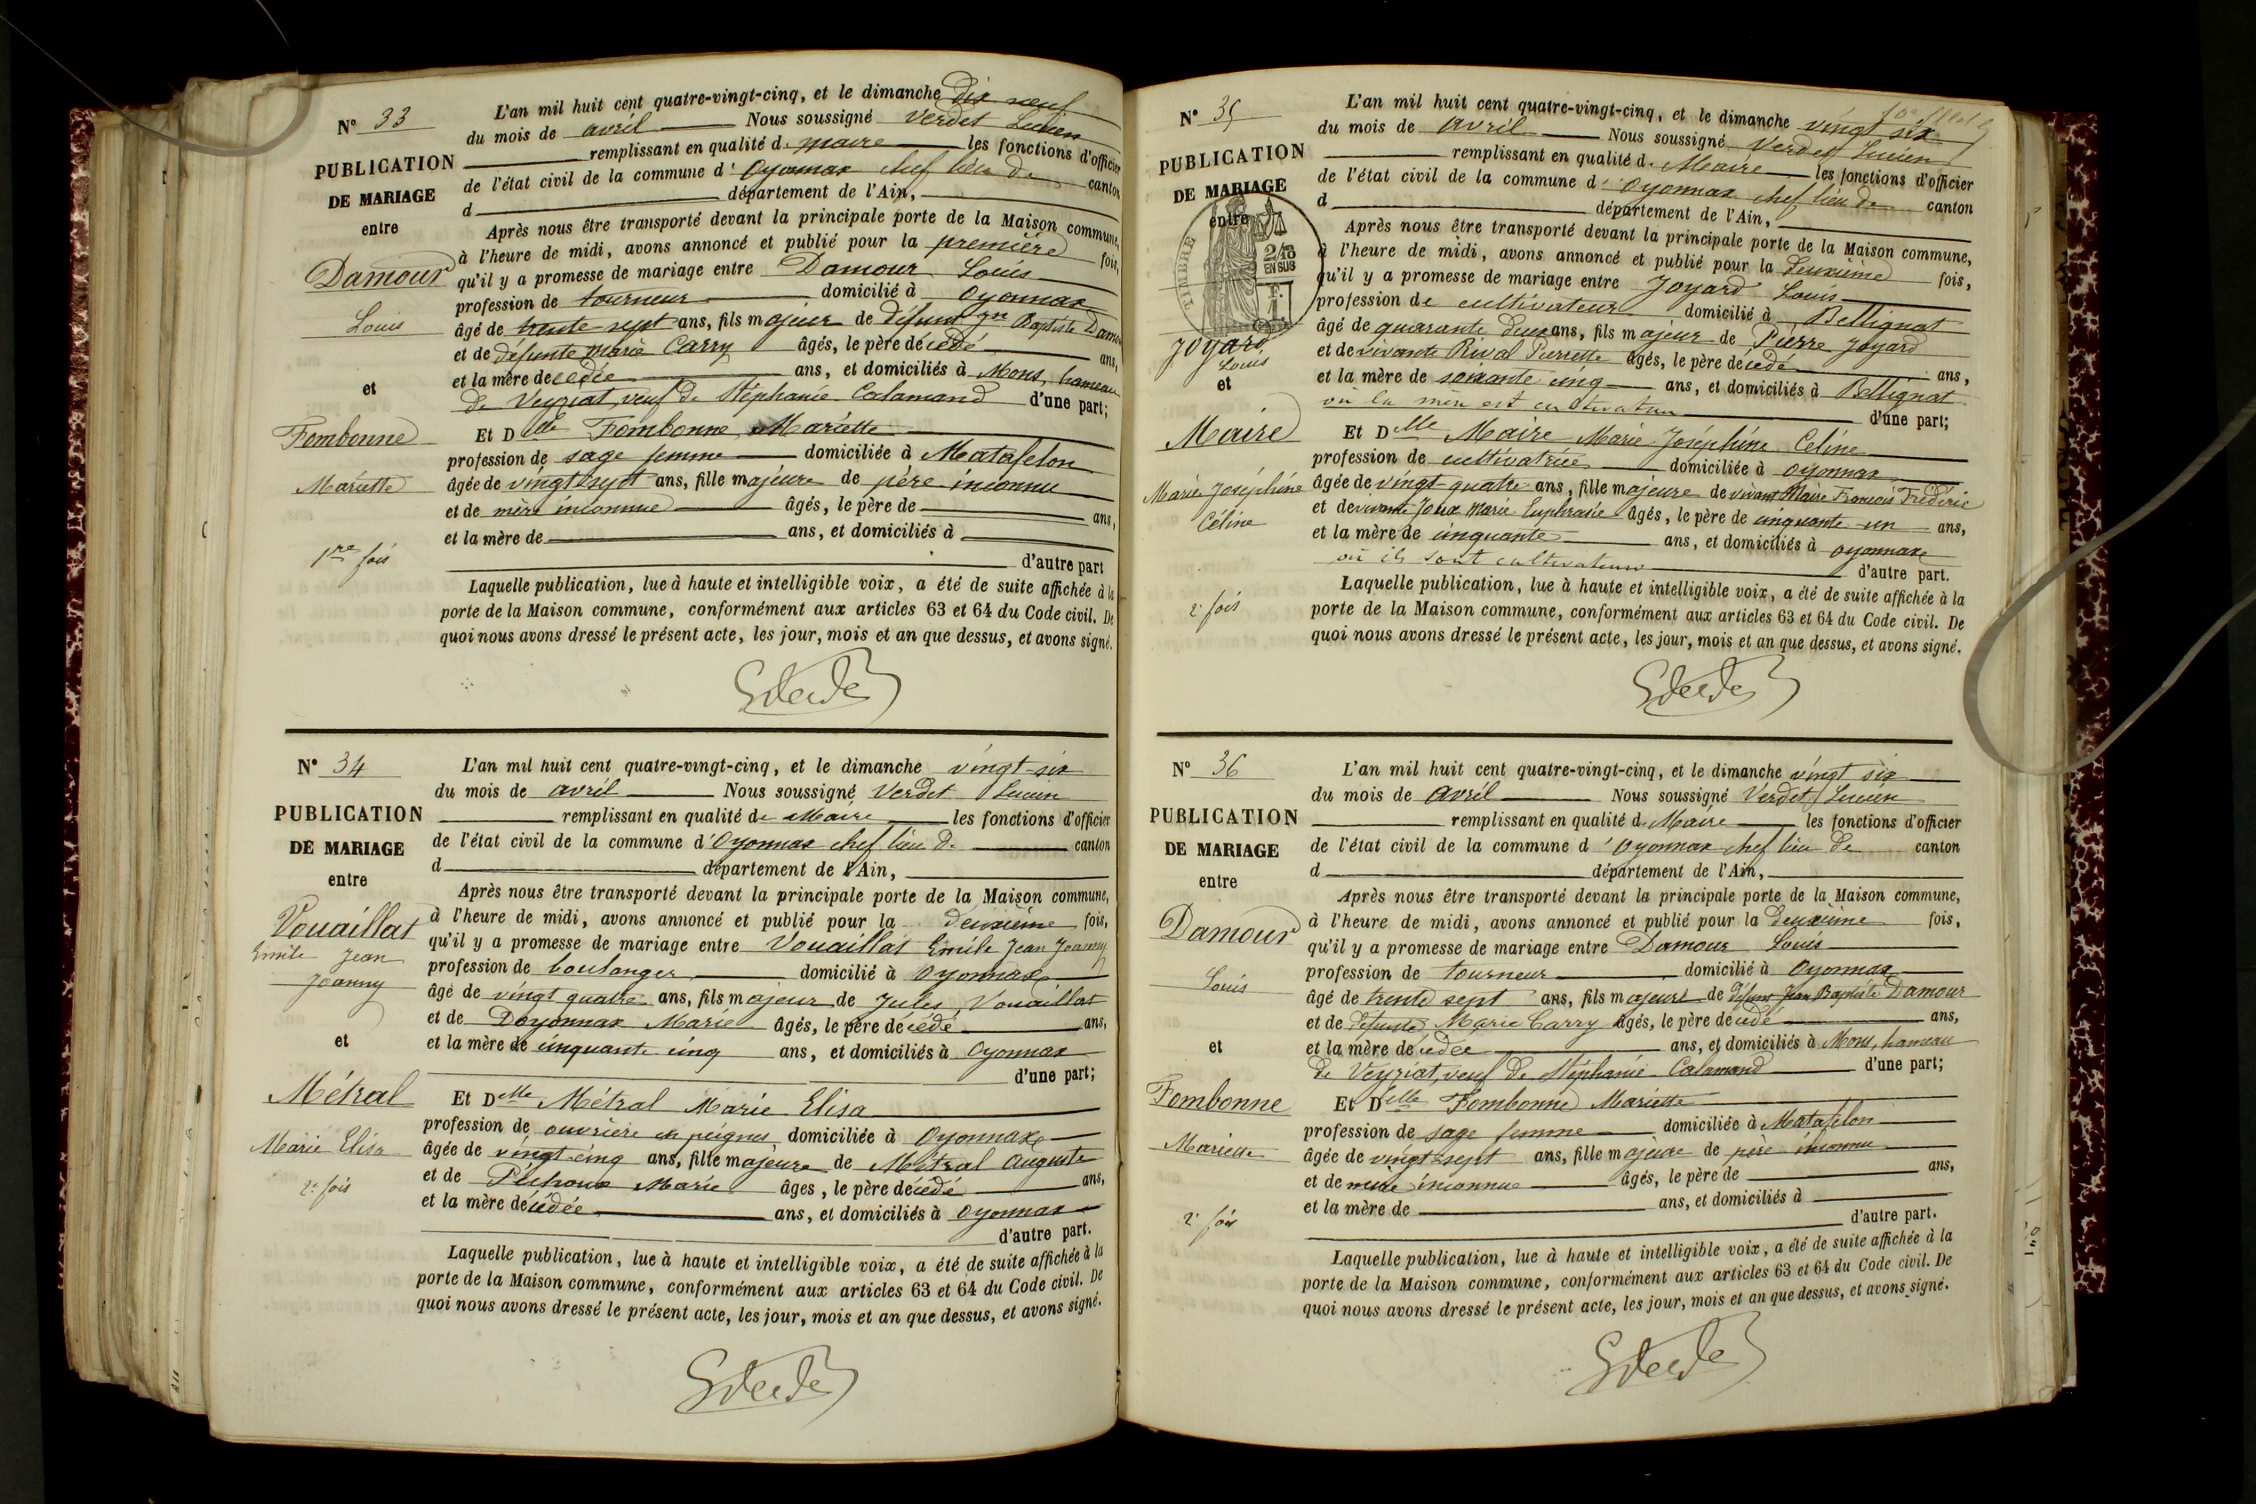 N° 33
PUBLICATION
DE MARIAGE
entre
Damour
Louis
et
Fombonne
Mariette
1re fois
L'an mil huit cent quatre-vingt-cinq, et le dimanche dix neuf
du mois de avril Nous soussigné Verdet Lucien
remplissant en qualité de maire les fonctions d'officier
de l'état civil de la commune d'Oyonnax chef lieu de canton
d département de l'Ain,
Après nous être transporté devant la principale porte de la Maison commune,
à l'heure de midi, avons annoncé et publié pour la première fois,
qu'il y a promesse de mariage entre Damour Louis
profession de tourneur domicilié à Oyonnax
âgé de trente sept ans, fils majeur de défunt Jn Baptiste Damour
et de défunte Marie Carry âgés, le père décédé ans,
et la mère decedée ans, et domiciliés à Mons, hameau
de Veyziat, veuf de Stéphanie Calamand d'une part;
Et Delle Fombonne Mariette
profession de sage femme domiciliée à Matafelon
âgée de vingt sept ans, fille majeure de père inconnu
et de mère inconnue âgés, le père de ans,
et la mère de ans, et domiciliés à
d'autre part
Laquelle publication, lue à haute et intelligible voix, a été de suite affichée à la
porte de la Maison commune, conformément aux articles 63 et 64 du Code civil. De
quoi nous avons dressé le présent acte, les jour, mois et an que dessus, et avons signé.
N° 34
PUBLICATION
DE MARIAGE
entre
Vouaillat
Emile Jean
Joanny
et
Métral
Marie Elisa
2e fois
L'an mil huit cent quatre-vingt-cinq, et le dimanche vingt-six
du mois de avril Nous soussigné Verdet Lucien
remplissant en qualité de Maire les fonctions d'officier
de l'état civil de la commune d'Oyonnax chef lieu de canton
d département de l'Ain,
Après nous être transporté devant la principale porte de la Maison commune,
à l'heure de midi, avons annoncé et publié pour la deuxième fois,
qu'il y a promesse de mariage entre Vouaillat Emile Jean Joanny
profession de boulanger domicilié à Oyonnax
âgé de vingt quatre ans, fils majeur de Jules Vouaillat
et de Doyonnax Marie âgés, le père décédé ans,
et la mère de cinquante cinq ans, et domiciliés à Oyonnax
d'une part;
Et Delle Métral Marie Elisa
profession de ouvrière en peignes domiciliée à Oyonnax
âgée de vingt-cinq ans, fille majeure de Métral Auguste
et de Marie âges, le père décédé ans,
et la mère décédée ans, et domiciliés à Oyonnax
d'autre part.
Laquelle publication, lue à haute et intelligible voix, a été de suite affichée à la
porte de la Maison commune, conformément aux articles 63 et 64 du Code civil. De
quoi nous avons dressé le présent acte, les jour, mois et an que dessus, et avons signé.
N° 35
PUBLICATION
DE MARIAGE
entre
TIMBRE
2/10
EN SUS
Joyard
Louis
et
Maire
Marie Joséphine
Céline
2e fois
L'an mil huit cent quatre-vingt-cinq, et le dimanche vingt six
du mois de avril Nous soussigné Verdet Lucien
remplissant en qualité de Maire les fonctions d'officier
de l'état civil de la commune d'Oyonnax chef lieu de canton
d département de l'Ain,
Après nous être transporté devant la principale porte de la Maison commune,
à l'heure de midi, avons annoncé et publié pour la deuxième fois,
qu'il y a promesse de mariage entre Joyard Louis
profession de cultivateur domicilié à Bellignat
âgé de quarante deux ans, fils majeur de Pierre Joyard
et de vivante Rival Pierrette âgés, le père décedé ans,
et la mère de soixante cinq ans, et domiciliés à Bellignat
où la mère est cultivateur d'une part;
Et Delle Maire Marie Joséphine Celine
profession de cultivatrice domiciliée à Oyonnax
âgée de vingt quatre ans, fille majeure de vivant Maire François Fréderic
et de vivante Joux Marie Euphrasie âgés, le père de cinquante un ans,
et la mère de cinquante ans, et domiciliés à Oyonnax
où ils sont cultivateurs d'autre part.
Laquelle publication, lue à haute et intelligible voix, a été de suite affichée à la
porte de la Maison commune, conformément aux articles 63 et 64 du Code civil. De
quoi nous avons dressé le présent acte, les jour, mois et an que dessus, et avons signé.
N° 36
PUBLICATION
DE MARIAGE
entre
Damour
Louis
et
Fombonne
Mariette
2e fois
L'an mil huit cent quatre-vingt-cinq, et le dimanche vingt six
du mois de avril Nous soussigné Verdet Lucien
remplissant en qualité de Maire les fonctions d'officier
de l'état civil de la commune d'Oyonnax chef lieu de canton
d département de l'Ain,
Après nous être transporté devant la principale porte de la Maison commune,
à l'heure de midi, avons annoncé et publié pour la deuxième fois,
qu'il y a promesse de mariage entre Damour Louis
profession de tourneur domicilié à Oyonnax
âgé de trente sept ans, fils majeur de défunt Jean Baptiste Damour
et de défunte Marie Carry âgés, le père décedé ans,
et la mère décedée ans, et domiciliés à Mons, hameau
de Veyziat, veuf de Stéphanie Calamand d'une part;
Et Delle Fombonne Mariette
profession de sage femme domiciliée à Matafelon
âgée de vingt-sept ans, fille majeure de père inconnu
et de mère inconnue âgés, le père de ans,
et la mère de ans, et domiciliés à
d'autre part.
Laquelle publication, lue à haute et intelligible voix, a été de suite affichée à la
porte de la Maison commune, conformément aux articles 63 et 64 du Code civil. De
quoi nous avons dressé le présent acte, les jour, mois et an que dessus, et avons signé.